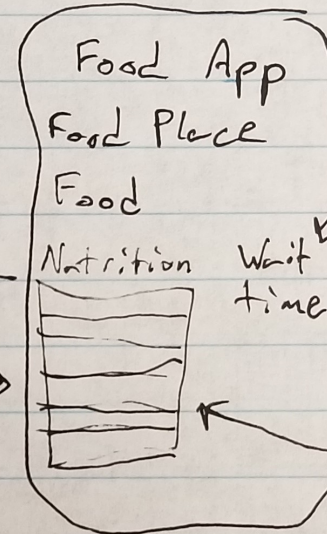 Food App
Food Place
Food
Nutrition Wait
time